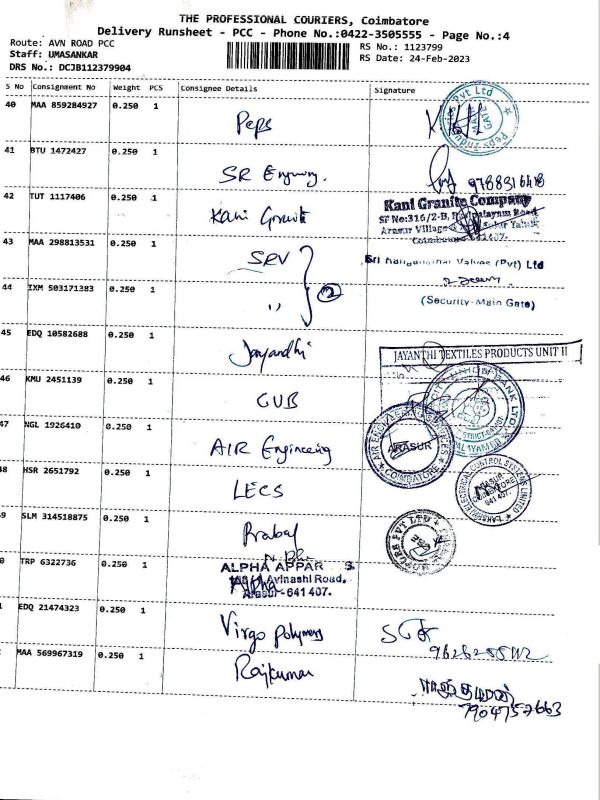 THE PROFESSIONAL COURIERS, Coimbatore
Delivery Runsheet - PCC - Phone No.:0422-3505555 - Page No.:4
Route: AVN ROAD PCC
RS No.: 1123799
Staff: UMASANKAR
RS Date: 24-Feb-2023
DRS No.: DCJB112379904
S No Consignment No Weight PCS Consignee Details Signature
40 MAA 859284927 0.250 1 Peps
Peps Pvt Ltd
GATE
41 BTU 1472427 0.250 1 SR Engineering.
9788316418
42 TUT 1117406 0.250 1 Kani Granite
Kani Granite Company
SF No:316/2-B,
Arasur Village
43 MAA 298813531 0.250 1 SRV
Sri Ranganathar Valves (Pvt) Ltd
44 IXM 503171383 0.250 1 ,, 2
(Security-Main Gate)
45 EDQ 10582688 0.250 1 Jayandhi
JAYANTHI TEXTILES PRODUCTS UNIT II
46 KMU 2451139 0.250 1 CUB
CITY UNION BANK LTD.
47 NGL 1926410 0.250 1 AIR Engineering
ARASUR
COIMBATORE
48 HSR 2651792 0.250 1 LECS
LAKSHMI ELECTRICAL CONTROL SYSTEMS LIMITED
ARASUR
COIMBATORE
641 407.
49 SLM 314518875 0.250 1 Prabal
PVT LTD
TRP 6322736 0.250 1 ALPHA APPAR S
Avinashi Road,
Alpha
Arasur - 641 407.
EDQ 21474323 0.250 1 Virgo Polymers
MAA 569967319 0.250 1 Rajkumar
ராஜ்குமார்
7904757663